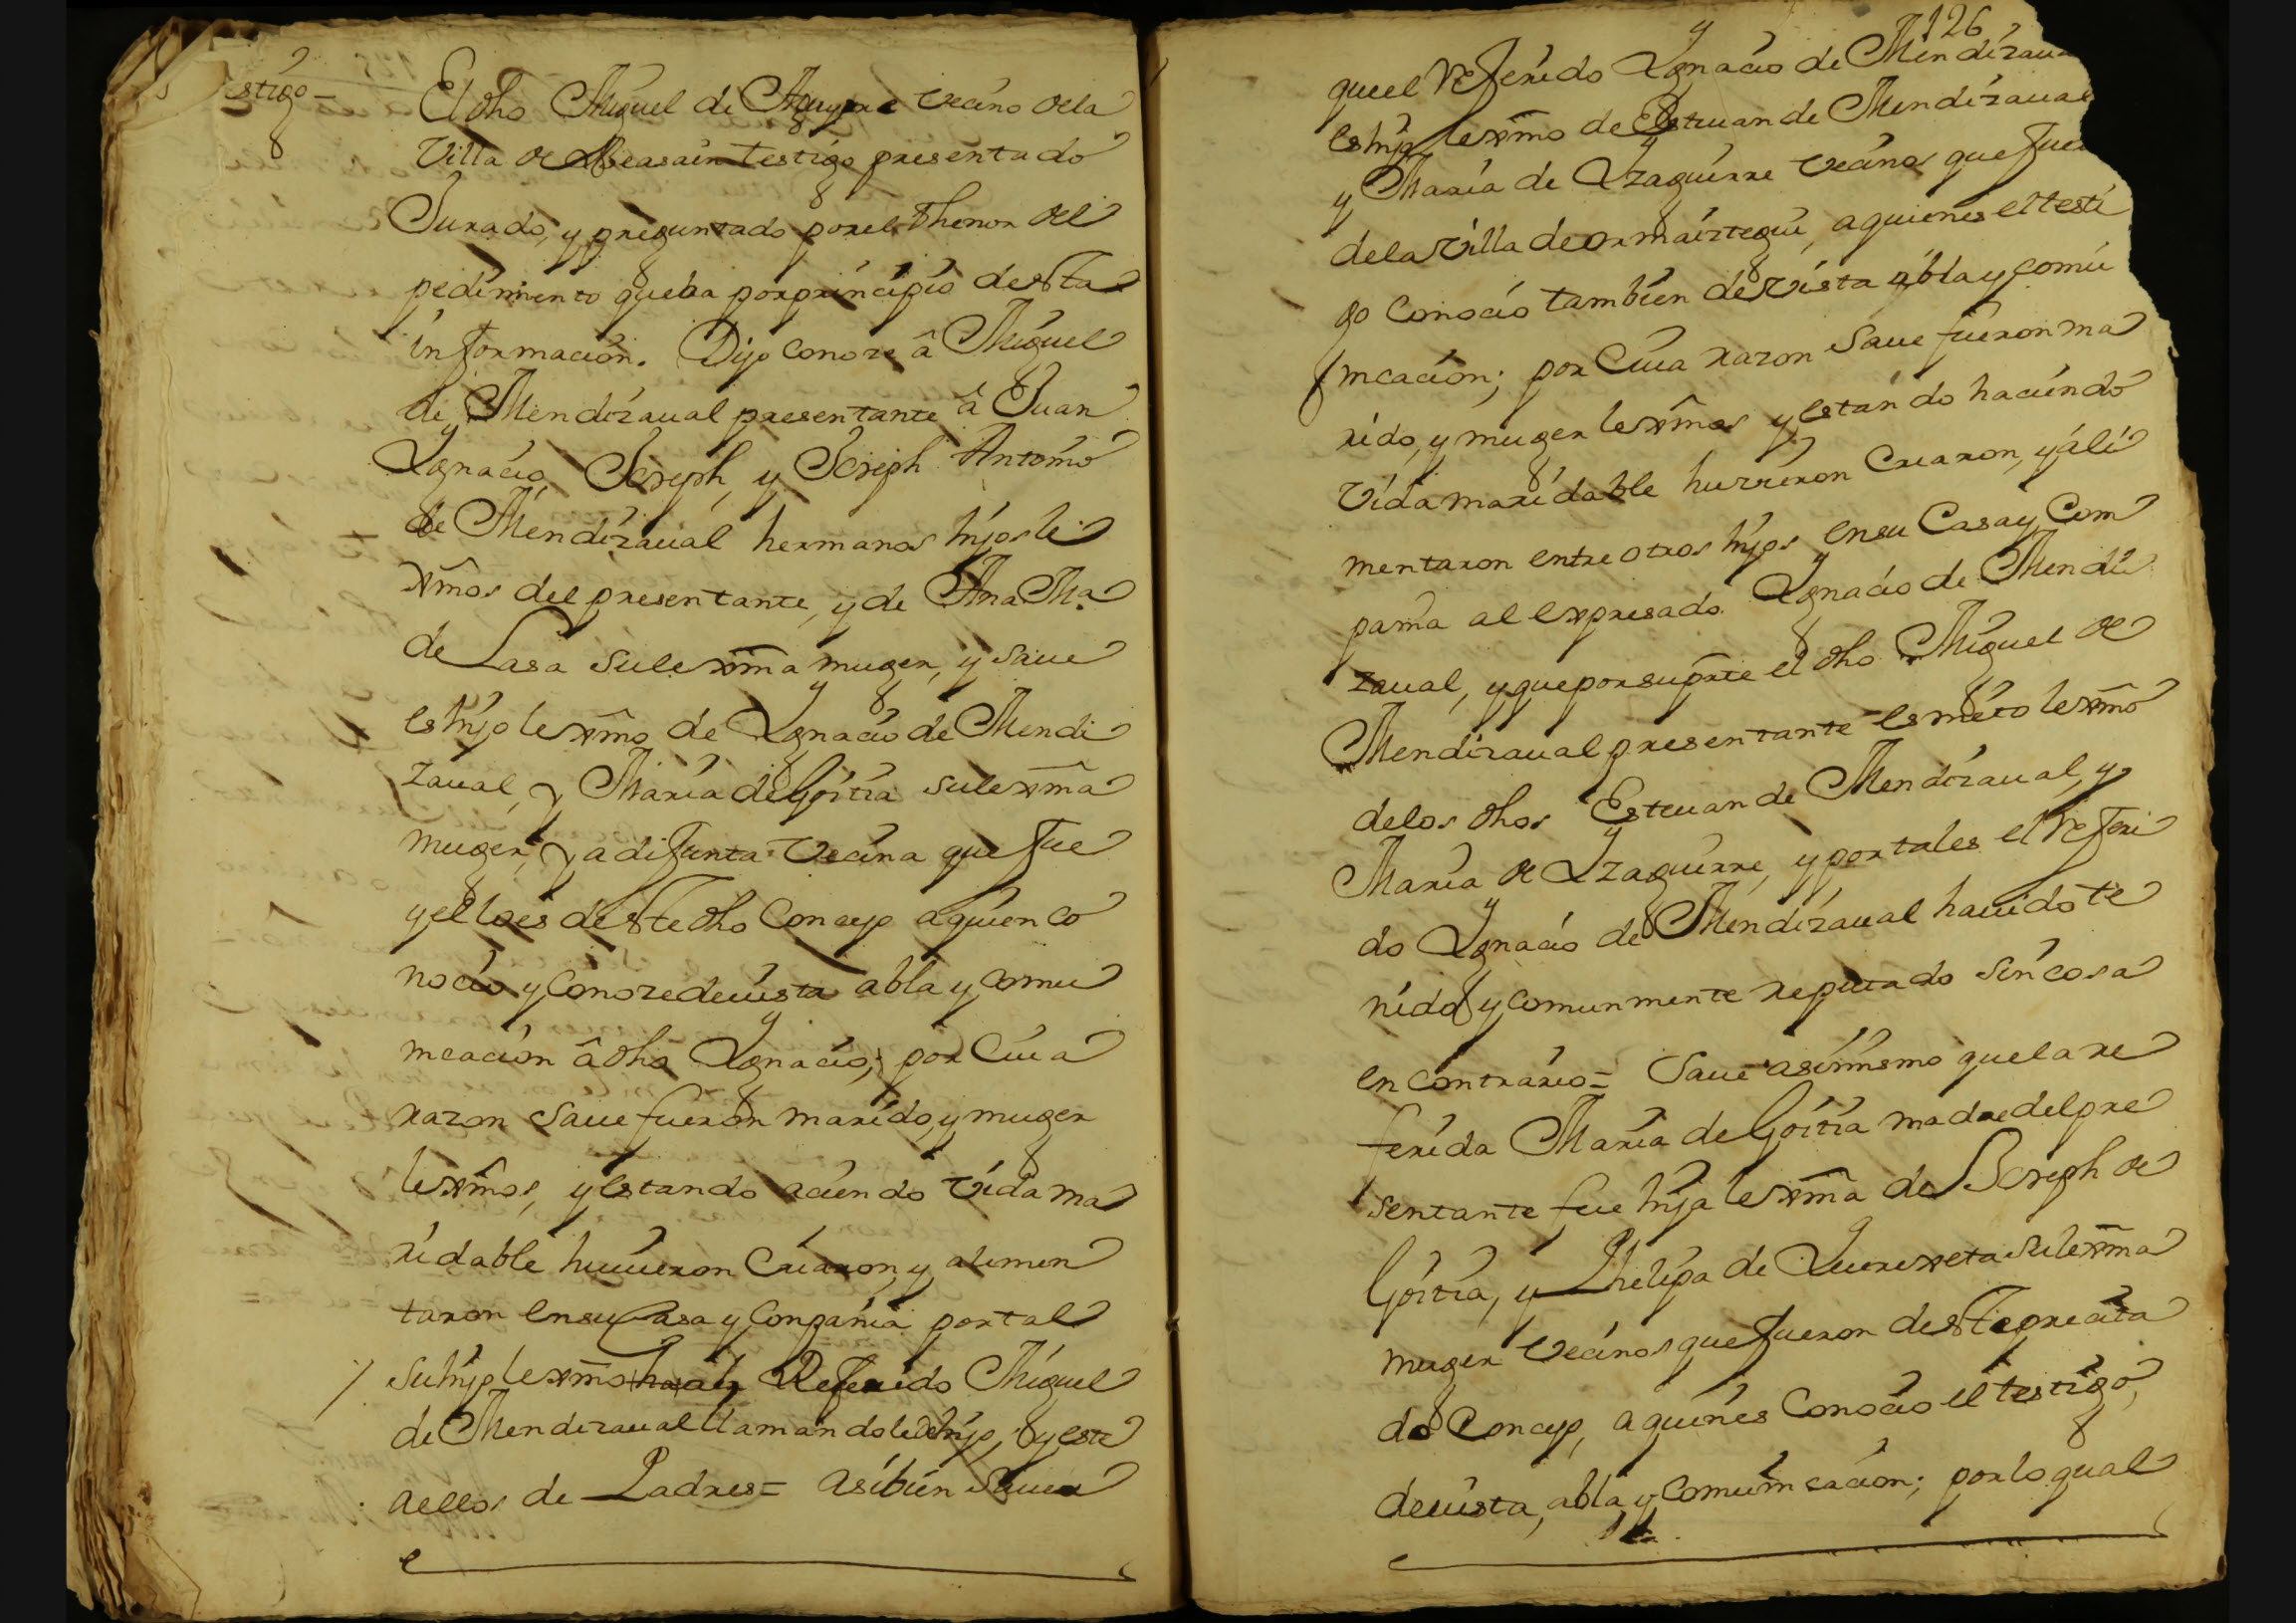 stigo =
El dho Miguel de Aguirre vecino de la
Villa de Beasain testigo presentado
Jurado, y preguntado por el thenor del
pedimiento que ba por principio desta
informacion. Dijo conoze â Miguel
de Mendizaual presentante â Juan
Ygnacio, Joseph, y Joseph Antonio
de Mendizaual hermanos hijos le
xmos del presentante, y de Ana Ma.
de Lasa su lexma muger, y saue
es hijo lexmo de Ygnacio de Mendi
zaual, y Maria de Goitia su lexma
muger, ya difunta vecina que fue
y el lo es deste dho Concejo a quien co
nocio y conoze de uista abla y comu
nicacion â dho Ygnacio; por cuia
razon saue fueron marido, y muger
lexmos, y estando aciendo vida ma
ridable huuieron criaron, y alimen
taron en su Casa y Conpañia por tal
su hijo lexmo Referido Miguel
de Mendizaual llamandole de hijo, y este
a ellos de Padres = asibien saue
126
que el referido Ygnacio de Mendizau
es hijo lexmo de Esteuan de Mendizaual
y Maria de Yzaguirre vecinos que fue
de la Villa de ormaiztegui, a quienes el testi
go conocio tambien de vista abla y comu
nicacion; por cuia razon saue fueron ma
rido, y muger lexmos y estando haciendo
vida maridable huvieron criaron, y ali
mentaron entre otros hijos en su Casa y Com
pañia al expresado Ygnacio de Mendi
zaual, y que por su prte el dho Miguel de
Mendizaual presentante es nieto lexmo
de los dhos Esteuan de Mendizaual, y
Maria de Yzaguirre, y por tales el referi
do Ygnacio de Mendizaual hauido te
nido y comunmente reputado sin cosa
en contrario = Saue asimismo que la re
ferida Maria de Goitia madre del pre
sentante fue hija lexma de Joseph de
Goitia, y Phelipa de Querexeta su lexma
muger vecinos que fueron deste precita
do Concejo, a quienes conocio el testigo,
de uista, abla y comunicacion; por lo qual